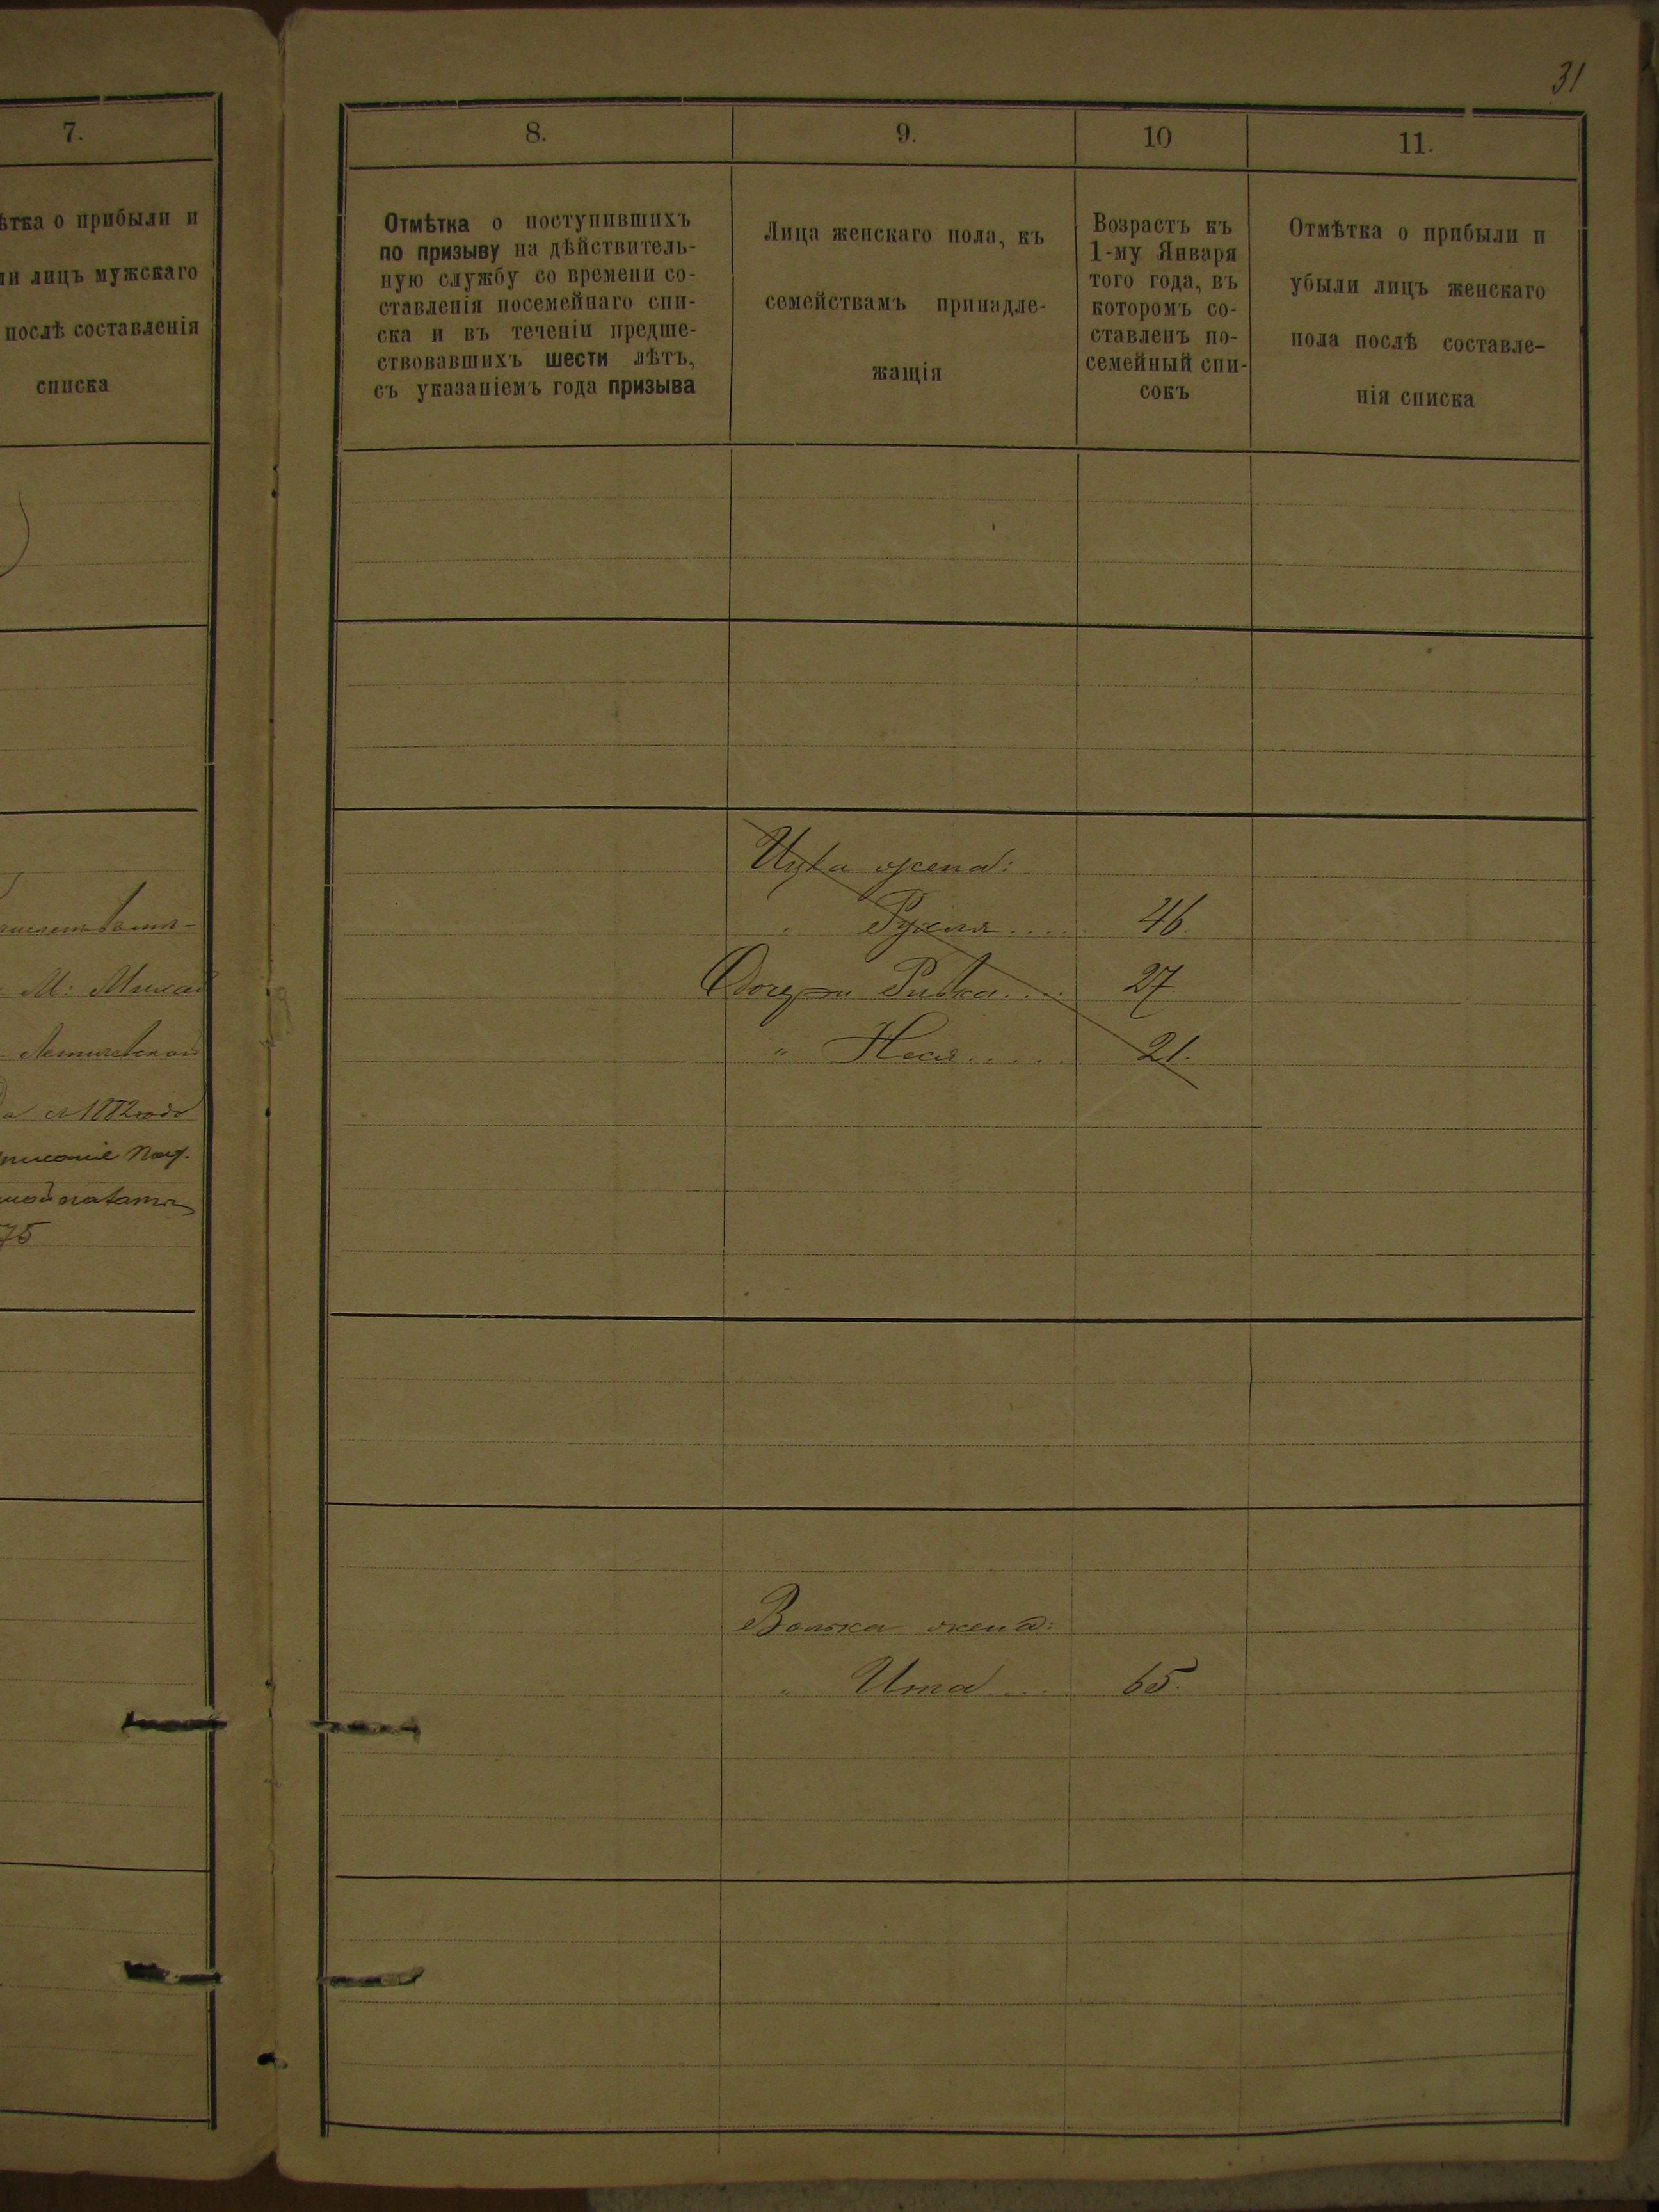 31
7.
ѣтка о прибыли и
ли лицъ мужскаго
послѣ составленія
списка
М: Михай
Летичевскай
а съ 1882 года
75
8.
9.
10
11.
Отмѣтка о поступившихъ
по призыву на дѣйствитель-
ную службу со времени со-
ставленія посемейнаго спи-
ска и въ теченіи предше-
ствовавшихъ шести лѣтъ,
съ указаніемъ года призыва
Лица женскаго пола, къ
семействамъ принадле-
жащія
Возрастъ къ
1-му Января
того года, въ
которомъ со-
ставленъ по-
семейный спи-
сокъ
Отмѣтка о прибыли и
убыли лицъ женскаго
пола послѣ составле-
нія списка
Ицка жена:
" Рухля .... 46
Дочери Ривка .... 27
" Неся ..... 21.
Волька жена:
" Ита .... 65.